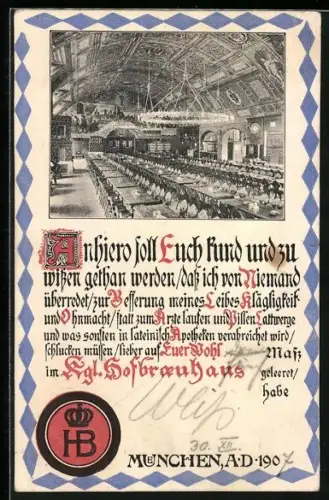 Anhiero soll Euch kund und zu
wißen gethan werden/daß ich von Niemand
überredet/zur Besserung meines Leibes Klägligkeit
und Ohnmacht/statt zum Arzte laufen und Pillen Lattwerge
und was sonsten in lateinisch Apotheken verabreichet wird/
schlucken müssen/lieber auf Euer Wohl Maß
im Kgl. Hofbraeuhaus geleeret/
habe
30. XII.
HB
MUENCHEN, A·D·1907